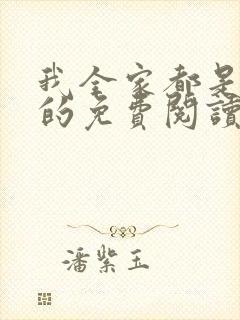 我全家都是
的免費閱讀
潘紫玉